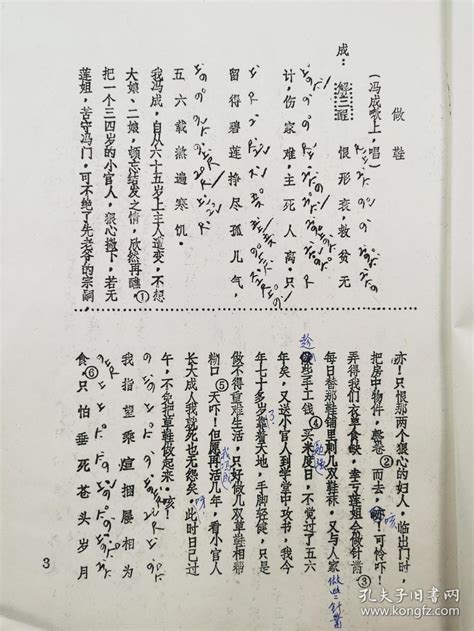 做鞋
(冯成嗽上，唱)
成：〔解三酲〕恨形衰，救贫无
计，伤家难，主死人离，只
留得碧莲挣尽孤儿气，
五六载熬遍寒饥。
我冯成，自从六十五岁上主人遭变，不想
大娘、二娘，顿忘结发之情，欣然再醮，①
把一个三四岁的小官人，狠心撇下，若无
莲姐，苦守冯门，可不绝了先老爷的宗嗣
亦！只恨那两个狠心的妇人，临出门时，
把房中物件，罄卷②而去，可怜吓！
弄得我们衣单食缺，幸亏莲姐会做针黹③
每日替那鞋铺里刺几双鞋袜，又与人家做些针黹
趁些手工钱④买米度日，不觉过了五六
年矣，又送小官人到学堂中攻书，我今
年七十多岁着天地，手脚轻健，只是
做不得重难生活，只好做几双草鞋相帮
糊口⑤天吓！但愿再活几年，看小官人
长大成人我就死也无怨矣。此时日已过
午，不免把草鞋做起来，咳！
我指望乘暄捆屦相为
食⑥只怕垂死苍头岁月
3
孔夫子旧书网
kongfz.com